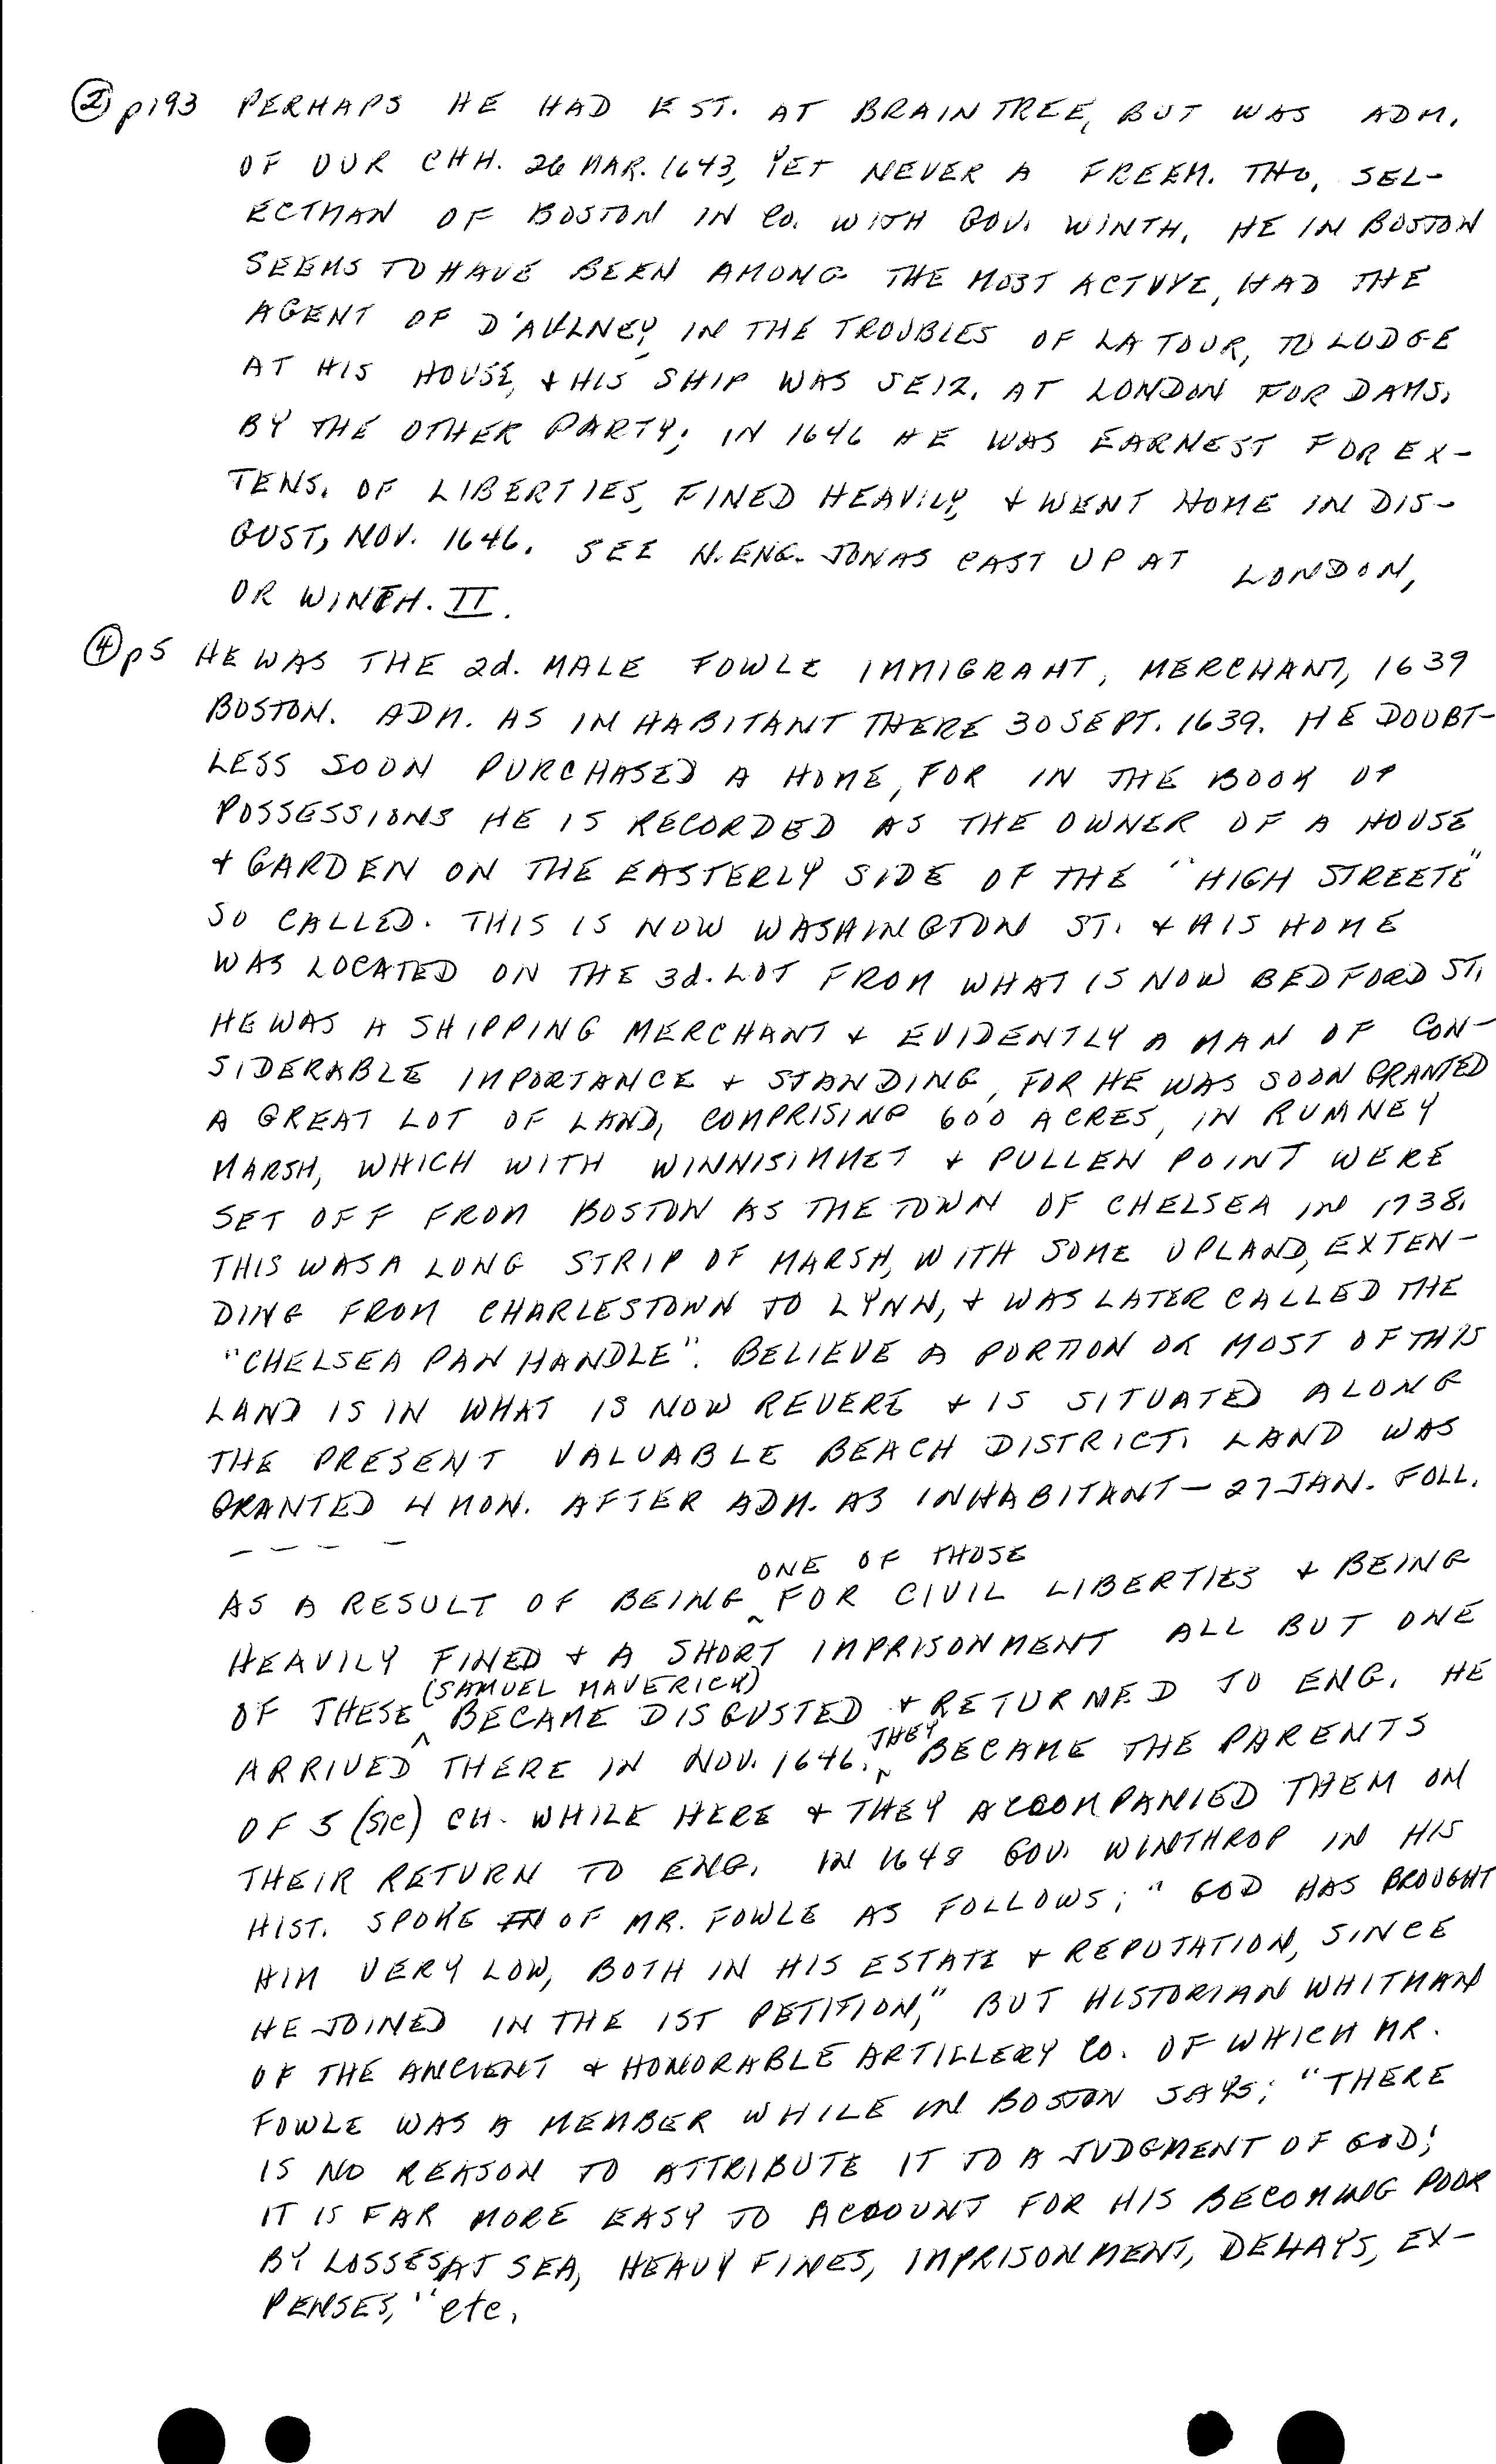 ② p193 PERHAPS HE HAD EST. AT BRAINTREE, BUT WAS ADM.
OF OUR CHH. 26 MAR. 1643, YET NEVER A FREEM. THO, SEL-
ECTMAN OF BOSTON IN CO. WITH GOV. WINTH. HE IN BOSTON
SEEMS TO HAVE BEEN AMONG THE MOST ACTVYE, HAD THE
AGENT OF D'AULNEY, IN THE TROUBLES OF LA TOUR, TO LODGE
AT HIS HOUSE, & HIS SHIP WAS SEIZ. AT LONDON FOR DAMS.
BY THE OTHER PARTY; IN 1646 HE WAS EARNEST FOR EX-
TENS. OF LIBERTIES, FINED HEAVILY, & WENT HOME IN DIS-
GUST, NOV. 1646. SEE N. ENG. JONAS CAST UP AT LONDON,
OR WINTH. II.
④ p5 HE WAS THE 2d. MALE FOWLE IMMIGRANT, MERCHANT, 1639
BOSTON. ADM. AS INHABITANT THERE 30 SEPT. 1639. HE DOUBT-
LESS SOON PURCHASED A HOME, FOR IN THE BOOK OF
POSSESSIONS HE IS RECORDED AS THE OWNER OF A HOUSE
& GARDEN ON THE EASTERLY SIDE OF THE "HIGH STREETE"
SO CALLED. THIS IS NOW WASHINGTON ST. & HIS HOME
WAS LOCATED ON THE 3d. LOT FROM WHAT IS NOW BEDFORD ST.
HE WAS A SHIPPING MERCHANT & EVIDENTLY A MAN OF CON-
SIDERABLE IMPORTANCE & STANDING, FOR HE WAS SOON GRANTED
A GREAT LOT OF LAND, COMPRISING 600 ACRES, IN RUMNEY
MARSH, WHICH WITH WINNISIMMET & PULLEN POINT WERE
SET OFF FROM BOSTON AS THE TOWN OF CHELSEA IN 1738.
THIS WAS A LONG STRIP OF MARSH, WITH SOME UPLAND, EXTEN-
DING FROM CHARLESTOWN TO LYNN, & WAS LATER CALLED THE
"CHELSEA PAN HANDLE". BELIEVE A PORTION OR MOST OF THIS
LAND IS IN WHAT IS NOW REVERE & IS SITUATED ALONG
THE PRESENT VALUABLE BEACH DISTRICT. LAND WAS
GRANTED 4 MON. AFTER ADM. AS INHABITANT — 27 JAN. FOLL.
— — — —
AS A RESULT OF BEING ^ONE OF THOSE FOR CIVIL LIBERTIES & BEING
HEAVILY FINED & A SHORT IMPRISONMENT ALL BUT ONE
OF THESE ^(SAMUEL MAVERICK) BECAME DISGUSTED & RETURNED TO ENG. HE
ARRIVED THERE IN NOV. 1646. ^THEY BECAME THE PARENTS
OF 5 (SIC) CH. WHILE HERE & THEY ACCOMPANIED THEM ON
THEIR RETURN TO ENG. IN 1648 GOV. WINTHROP IN HIS
HIST. SPOKE OF MR. FOWLE AS FOLLOWS; "GOD HAS BROUGHT
HIM VERY LOW, BOTH IN HIS ESTATE & REPUTATION, SINCE
HE JOINED IN THE 1ST PETITION," BUT HISTORIAN WHITMAN
OF THE ANCIENT & HONORABLE ARTILLERY CO. OF WHICH MR.
FOWLE WAS A MEMBER WHILE IN BOSTON SAYS; "THERE
IS NO REASON TO ATTRIBUTE IT TO A JUDGMENT OF GOD;
IT IS FAR MORE EASY TO ACCOUNT FOR HIS BECOMING POOR
BY LOSSES AT SEA, HEAVY FINES, IMPRISONMENT, DELAYS, EX-
PENSES," etc.